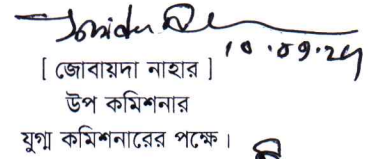 ১০.০৭.২৭
[ জোবায়দা নাহার ]
উপ কমিশনার
যুগ্ম কমিশনারের পক্ষে।